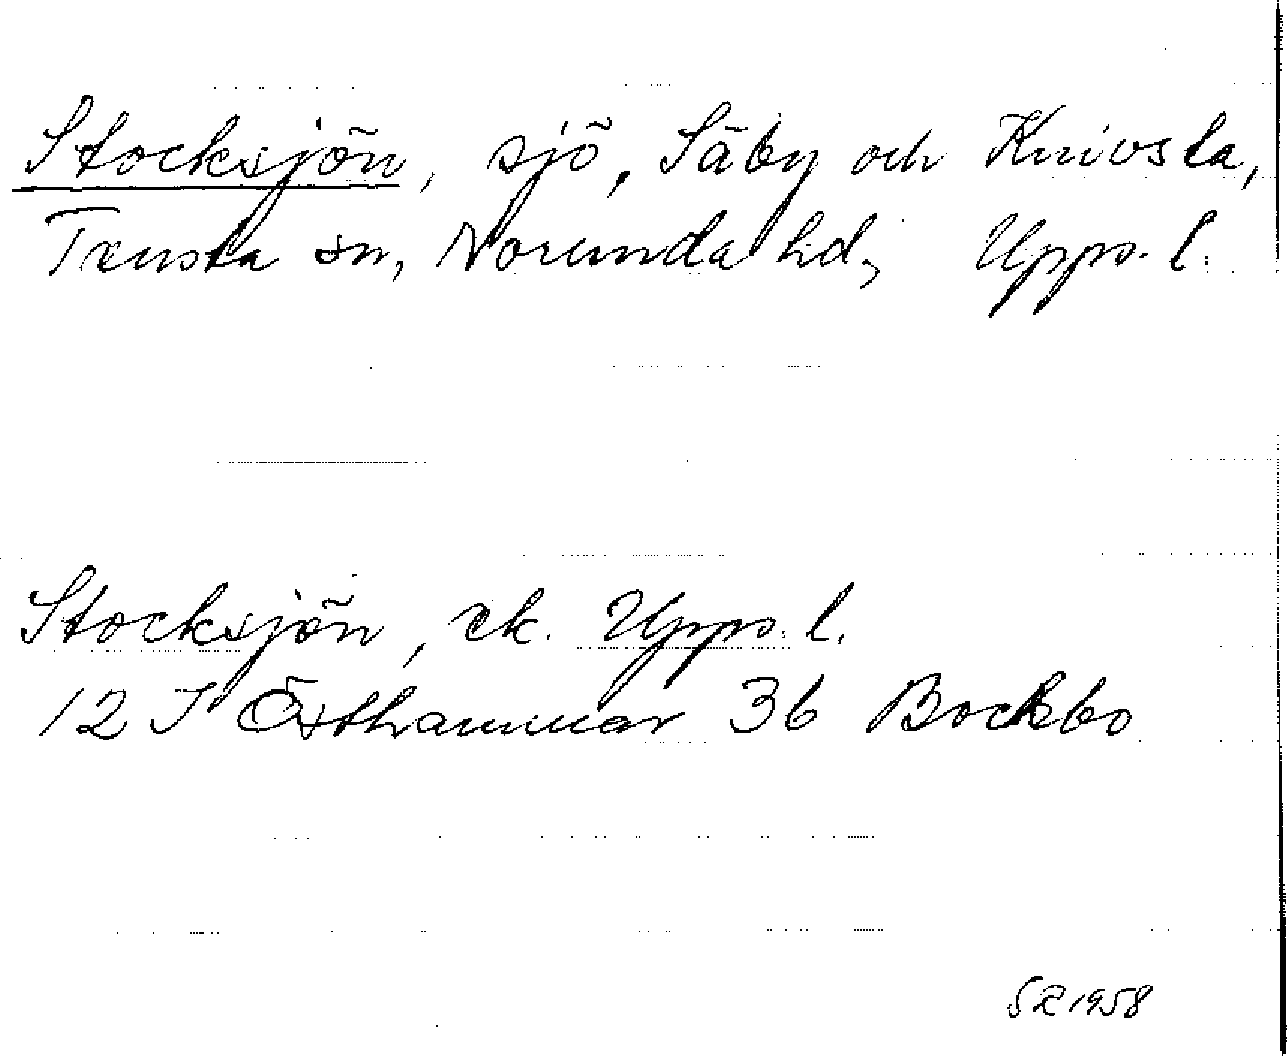 Stocksjön, sjö, Säby och Knivsta,
Tensta sn, Norunda hd, Upps. l.
Stocksjön, ek. Upps. l.
12 I Östhammar 36 Bockbo
SR 1958